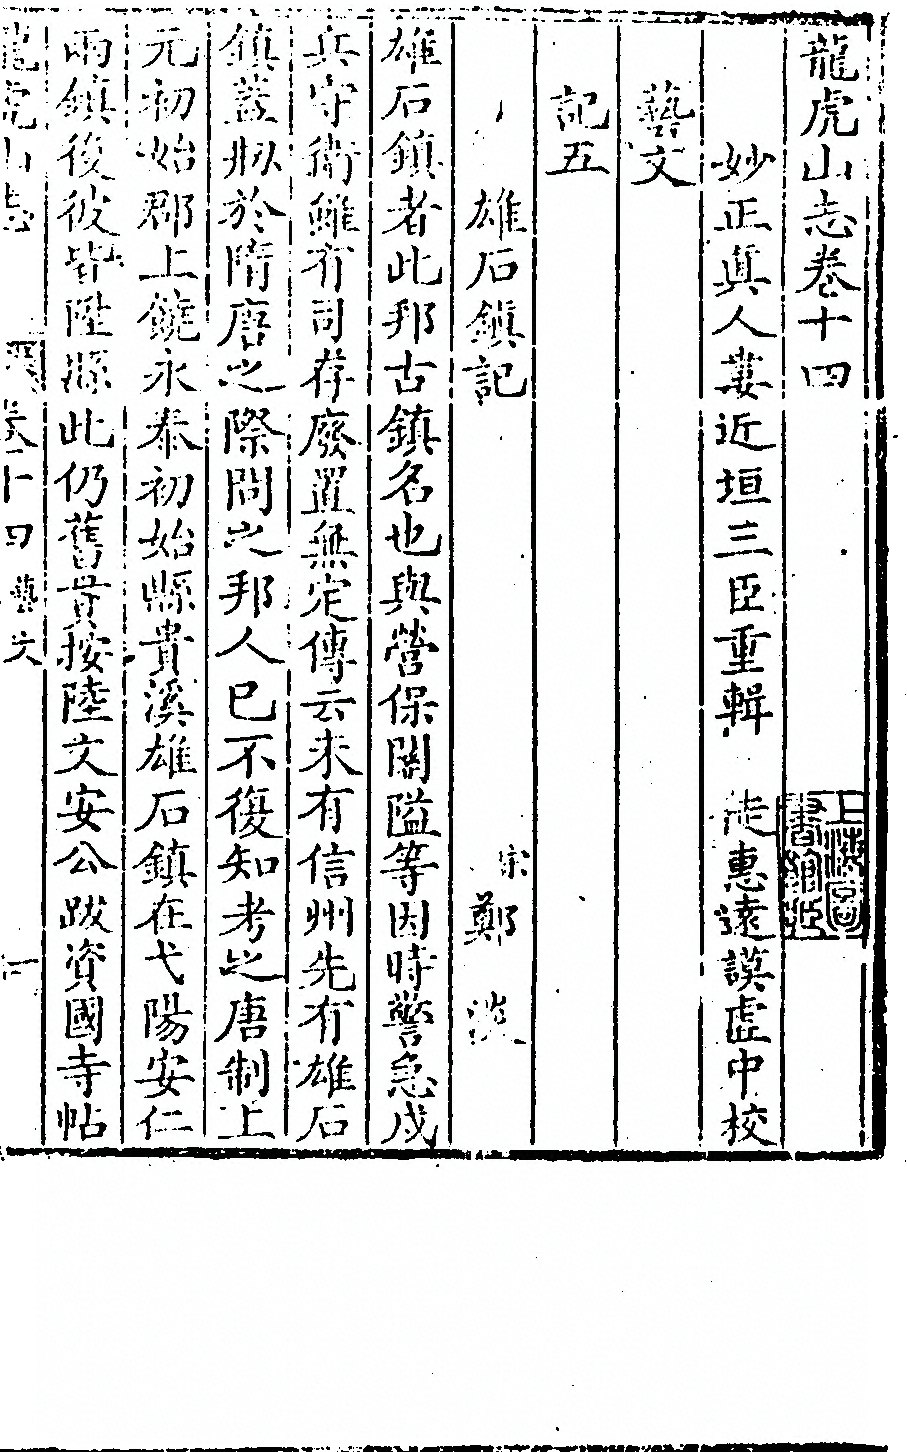 龍虎山志卷十四
妙正真人婁近垣三臣重輯 徒惠遠謨虛中校
藝文
記五
雄石鎮記 宗鄭
雄石鎮者此邦古鎮名也與營保關隘等因時警急戍
兵守衛雖有司存廢置無定傳云未有信州先有雄石
鎮蓋剏於隋唐之際問之邦人已不復知考之唐制上
元初始郡上饒永泰初始縣貴溪雄石鎮在弋陽安仁
兩鎮後彼皆陞縣此仍舊貫按陸文安公跋資國寺帖
龍虎山志 卷十四 藝文 一